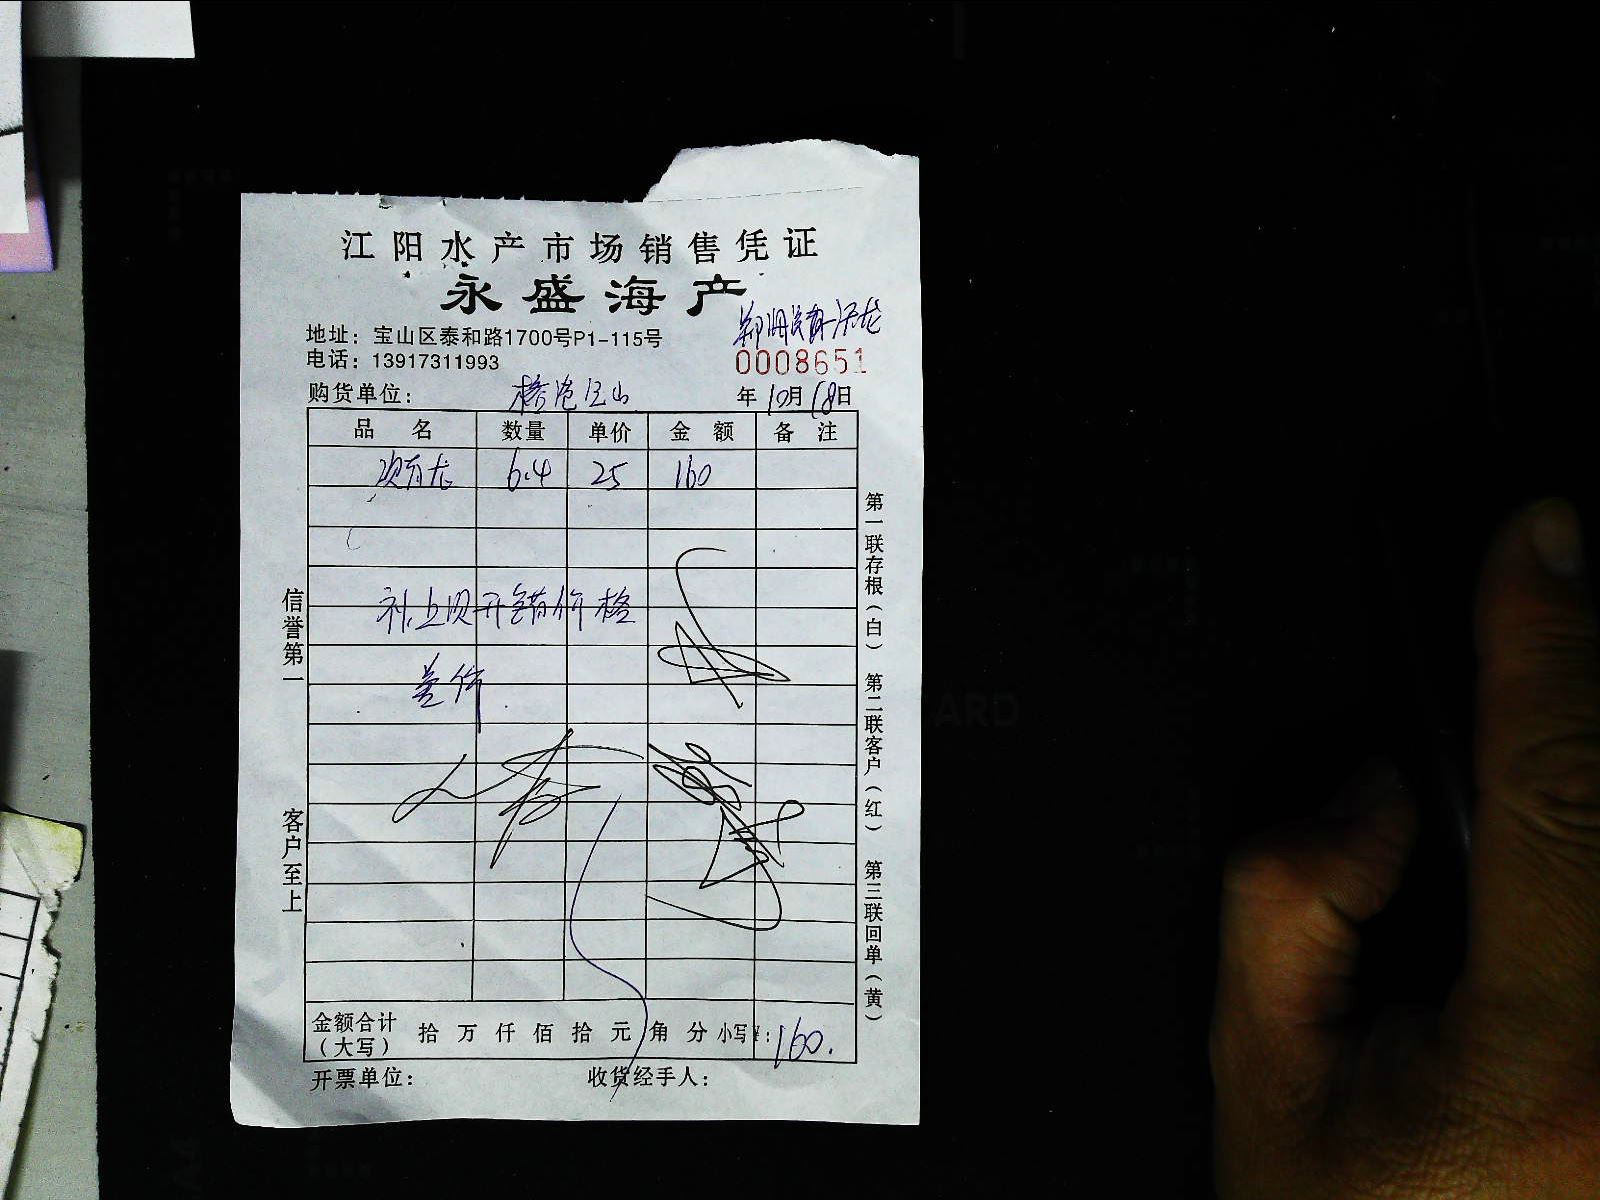 江阳水产市场销售凭证
永盛海产
地址：宝山区泰和路1700号P1-115号
电话：13917311993
0008651
购货单位： 年10月18日
品名 数量 单价 金额 备注
6.4 25 160
补上 开错价格
差价
信誉第一 客户至上
第一联存根（白） 第二联客户（红） 第三联回单（黄）
金额合计（大写） 拾 万 仟 佰 拾 元 角 分 小写¥：160.
开票单位： 收货经手人：